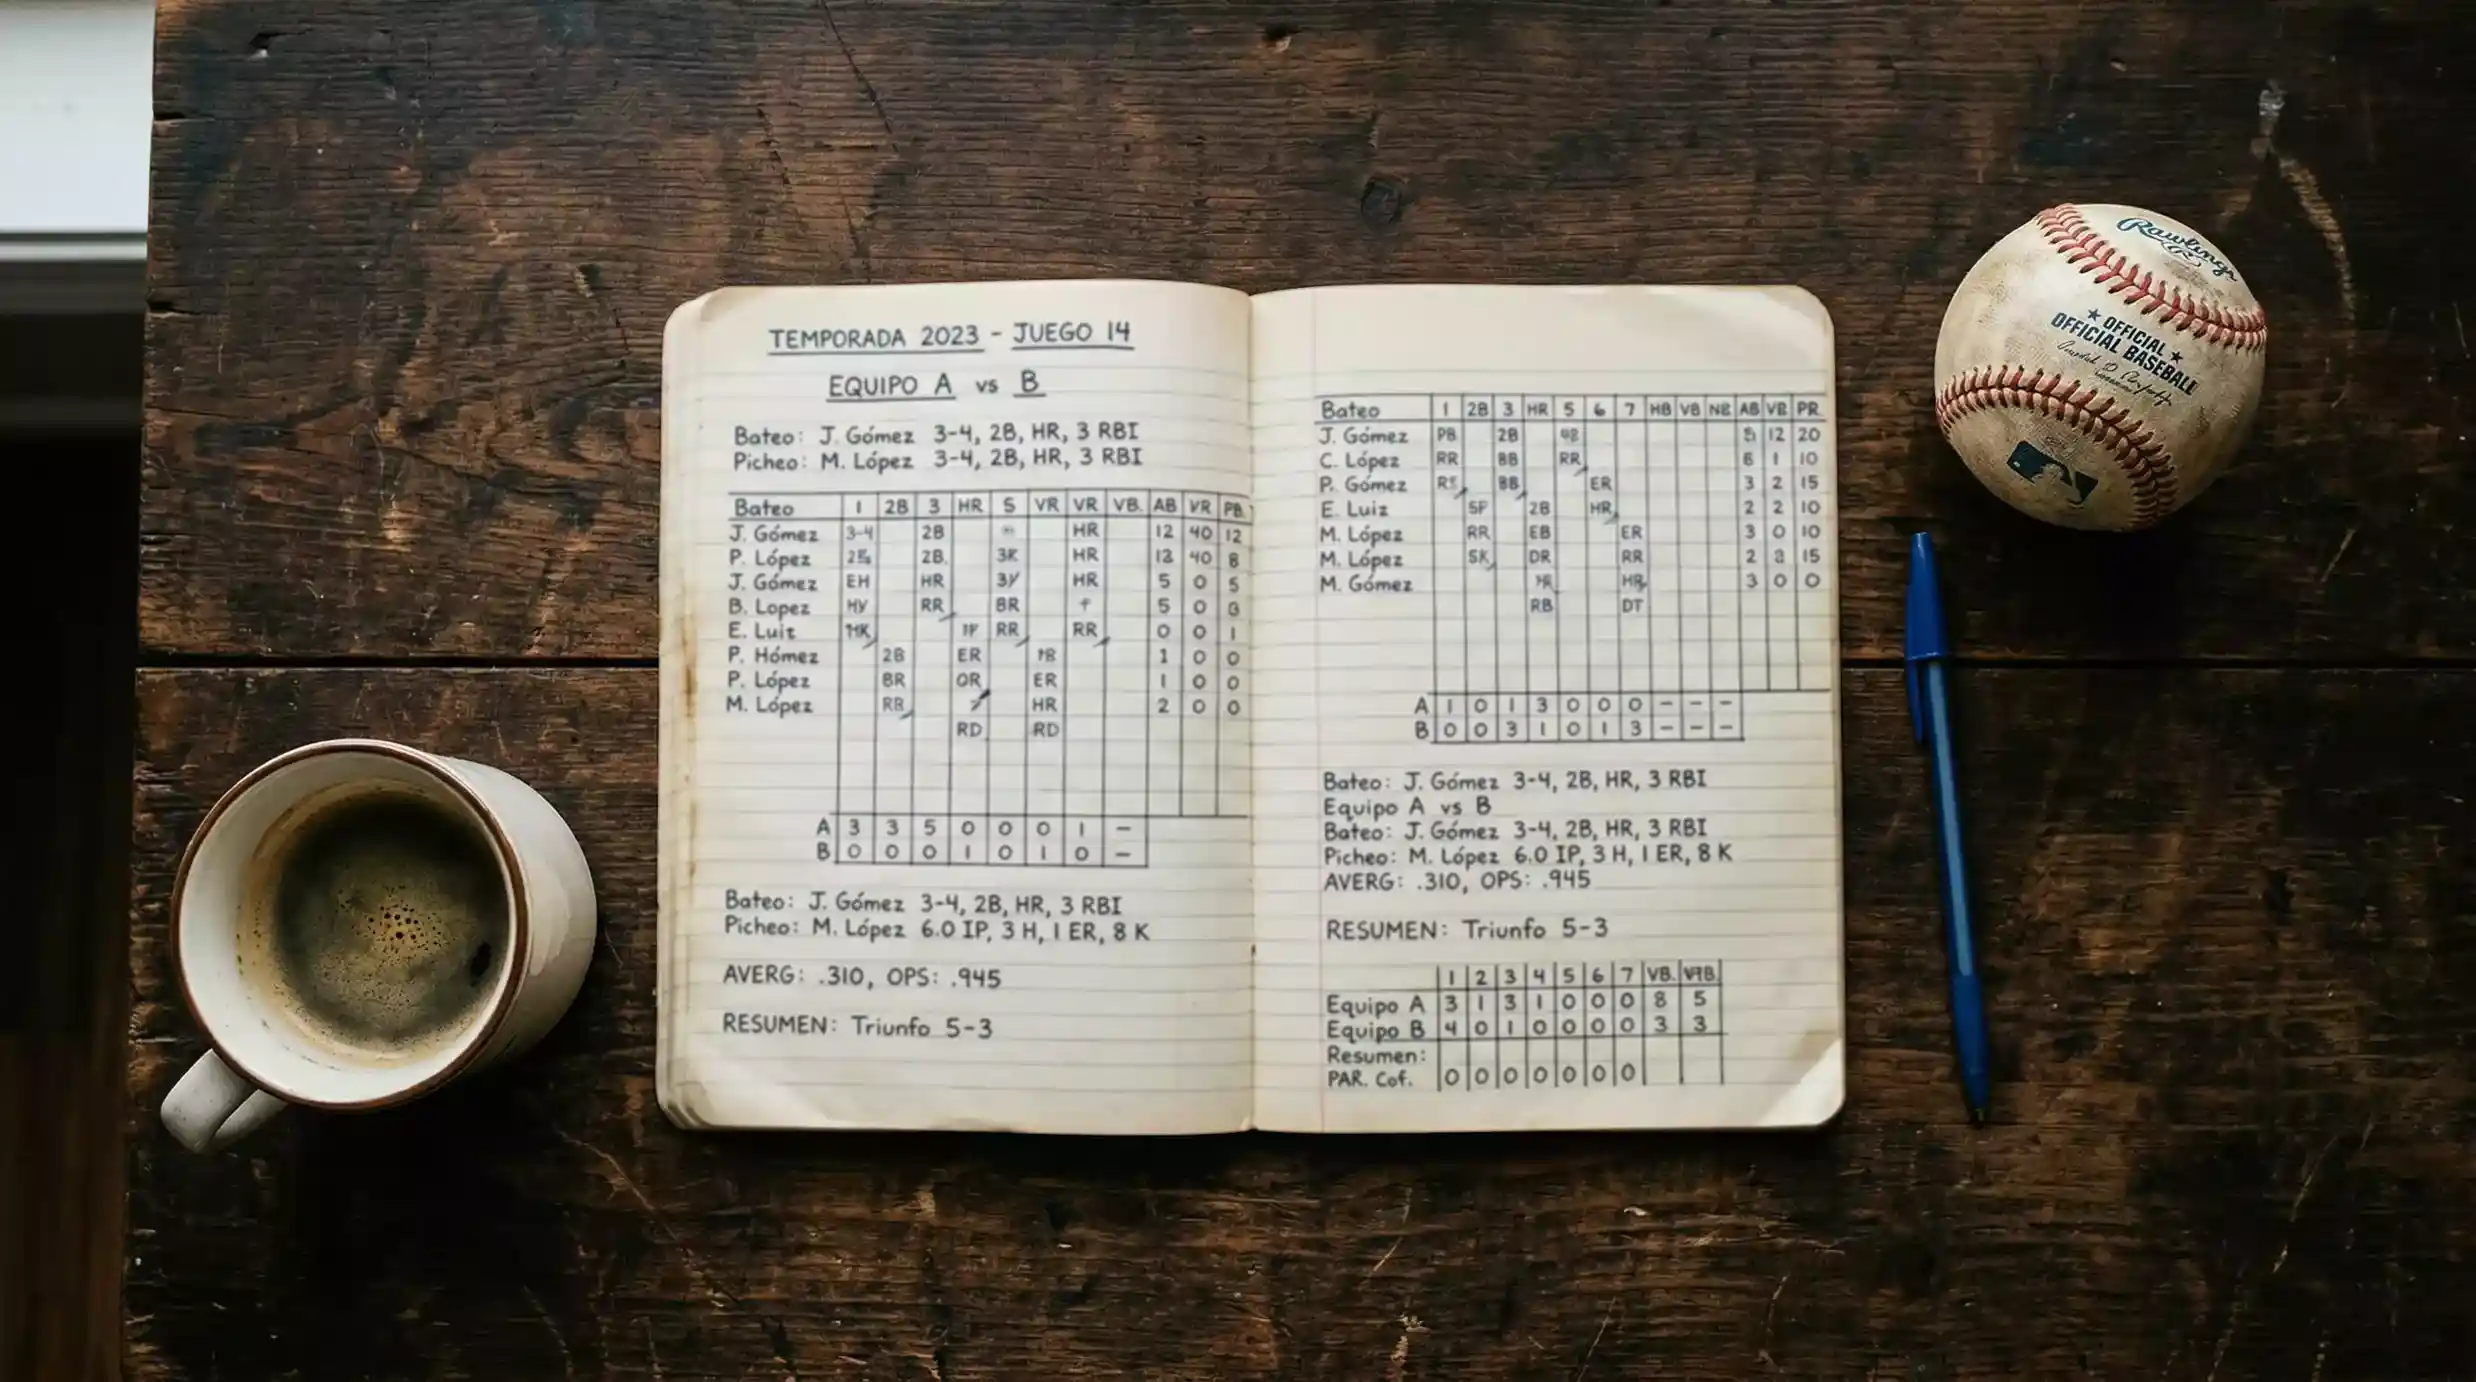 TEMPORADA 2023 - JUEGO 14
EQUIPO A vs B
Bateo: J. Gómez 3-4, 2B, HR, 3 RBI
Picheo: M. López 3-4, 2B, HR, 3 RBI
Bateo 1 2B 3 HR 5 VR VR VB. AB VR PB.
J. Gómez 3-4 2B HR 12 40 12
P. López 2B. 3K HR 13 40 8
J. Gómez EH HR 3Y HR 5 0 5
B. Lopez HY RR BR 5 0
E. Luit RR RR 0 0 1
P. Hómez 2B ER 1 0 0
P. López BR OR ER 1 0 0
M. López RB HR 2 0 0
RD RD
A 3 3 5 0 0 0 1 –
B 0 0 0 1 0 1 0 –
Bateo: J. Gómez 3-4, 2B, HR, 3 RBI
Picheo: M. López 6.0 IP, 3 H, 1 ER, 8 K
AVERG: .310, OPS: .945
RESUMEN: Triunfo 5-3
Bateo 1 2B 3 HR 5 6 7 HB VB AB VB PR.
J. Gómez PB 2B 5 12 20
C. López RR BB RR 6 1 10
P. Gómez BB ER 3 2 15
E. Luiz SP 2B HR 2 2 10
M. López RR EB ER 3 0 10
M. López SK DR RR 2 15
M. Gómez HR HR 3 0 0
RB DT
A 1 0 1 3 0 0 0 – – –
B 0 0 3 1 0 1 3 – – –
Bateo: J. Gómez 3-4, 2B, HR, 3 RBI
Equipo A vs B
Bateo: J. Gómez 3-4, 2B, HR, 3 RBI
Picheo: M. López 6.0 IP, 3 H, 1 ER, 8 K
AVERG: .310, OPS: .945
RESUMEN: Triunfo 5-3
1 2 3 4 5 6 7 VB.
Equipo A 3 1 3 1 0 0 0 8 5
Equipo B 4 0 1 0 0 0 0 3 3
Resumen:
PAR. Cof. 0 0 0 0 0 0 0
Rawlings
OFFICIAL
OFFICIAL BASEBALL